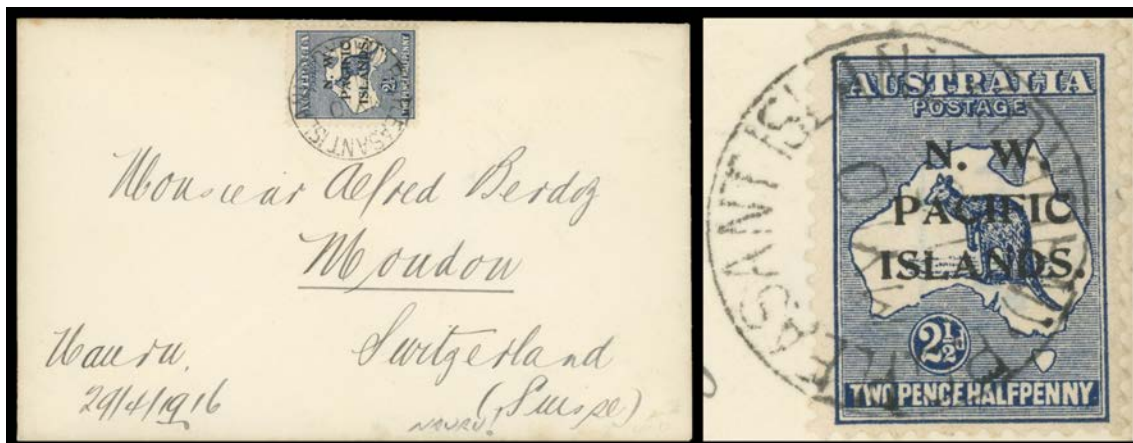 AUSTRALIA
N. W.
PACIFIC
ISLANDS.
2½d
PLEASANT ISLAND
Monsieur Alfred Berdoz
Moudon
Switzerland
(Suisse)
Nauru.
29/4/1916
NAURU!
AUSTRALIA
POSTAGE
N. W.
PACIFIC
ISLANDS.
2½d
TWO PENCE HALFPENNY
PLEASANT ISLAND